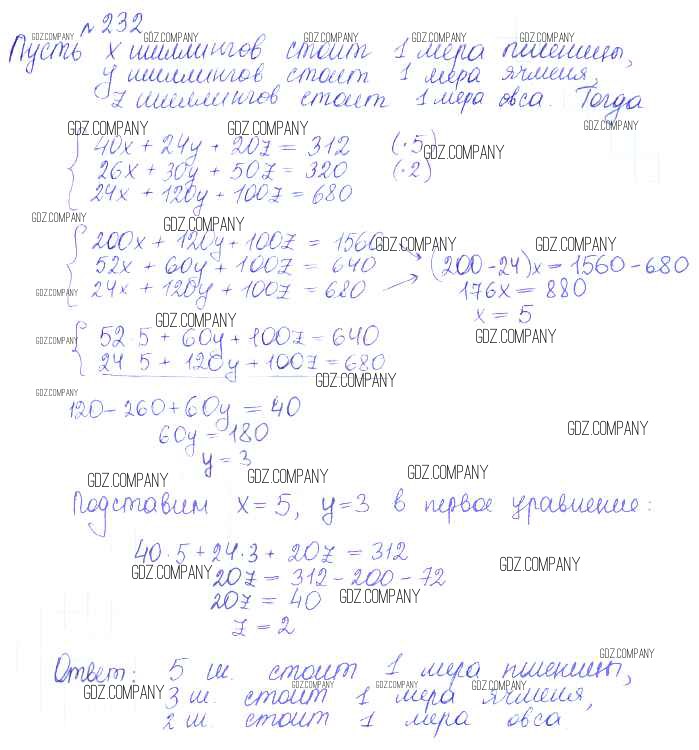 №232
Пусть x шиллингов стоит 1 мера пшеницы,
y шиллингов стоит 1 мера ячменя,
z шиллингов стоит 1 мера овса. Тогда
40x + 24y + 20z = 312 (·5)
26x + 30y + 50z = 320 (·2)
24x + 120y + 100z = 680
200x + 120y + 100z = 1560
52x + 60y + 100z = 640
24x + 120y + 100z = 680
(200-24)x = 1560-680
176x = 880
x = 5
52·5 + 60y + 100z = 640
24·5 + 120y + 100z = 680
120-260+60y = 40
60y = 180
y = 3
Подставим x=5, y=3 в первое уравнение:
40·5+24·3+20z = 312
20z = 312-200-72
20z = 40
z = 2
Ответ: 5 ш. стоит 1 мера пшеницы,
3 ш. стоит 1 мера ячменя,
2 ш. стоит 1 мера овса.
GDZ.COMPANY